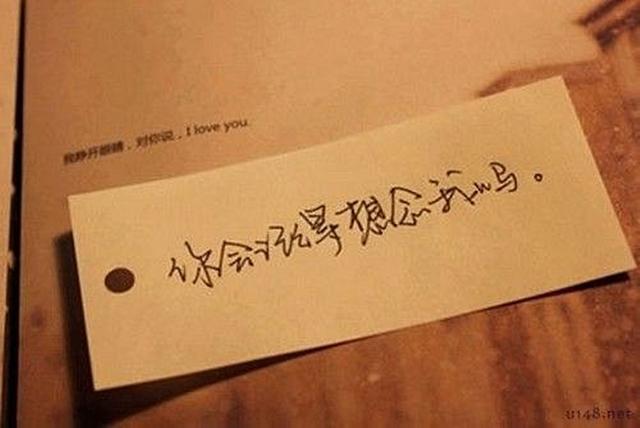 我睁开眼睛，对你说，I love you.
你会沿寻想念我吗。
u148.net